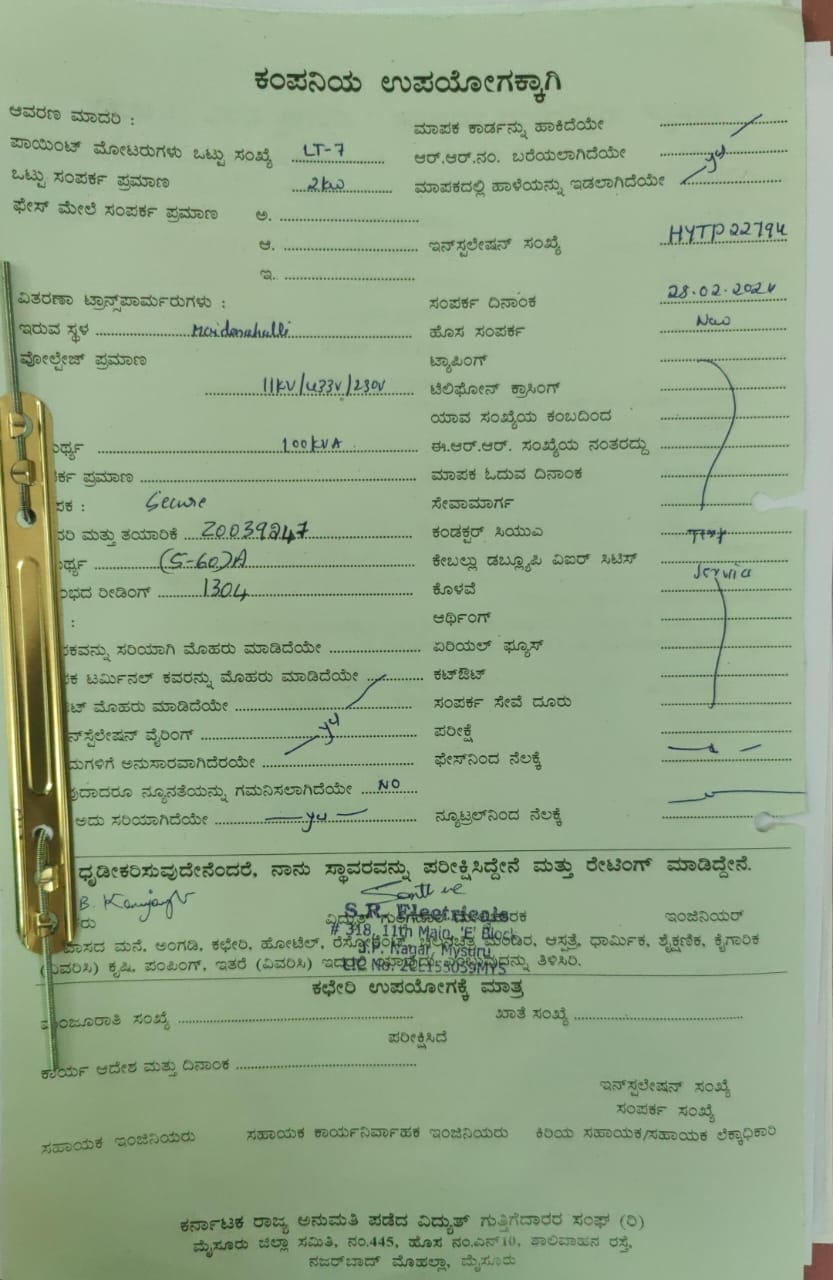 ಕಂಪನಿಯ ಉಪಯೋಗಕ್ಕಾಗಿ
ಆವರಣ ಮಾದರಿ : ಮಾಪಕ ಕಾರ್ಡನ್ನು ಹಾಕಿದೆಯೇ
ಪಾಯಿಂಟ್ ಮೋಟರುಗಳು ಒಟ್ಟು ಸಂಖ್ಯೆ LT-7 ಆರ್.ಆರ್.ನಂ. ಬರೆಯಲಾಗಿದೆಯೇ
ಒಟ್ಟು ಸಂಪರ್ಕ ಪ್ರಮಾಣ 2kw ಮಾಪಕದಲ್ಲಿ ಹಾಳೆಯನ್ನು ಇಡಲಾಗಿದೆಯೇ
ಫೇಸ್ ಮೇಲೆ ಸಂಪರ್ಕ ಪ್ರಮಾಣ ಅ.
ಆ. ಇನ್‌ಸ್ಪಲೇಷನ್ ಸಂಖ್ಯೆ HYTP22794
ಇ.
ವಿತರಣಾ ಟ್ರಾನ್ಸ್‌ಪಾರ್ಮರುಗಳು : ಸಂಪರ್ಕ ದಿನಾಂಕ 28.02.2024
ಇರುವ ಸ್ಥಳ ಹೊಸ ಸಂಪರ್ಕ New
ವೋಲ್ಟೇಜ್ ಪ್ರಮಾಣ ಟ್ಯಾಪಿಂಗ್
11KV/433V/230V ಟೆಲಿಫೋನ್ ಕ್ರಾಸಿಂಗ್
ಯಾವ ಸಂಖ್ಯೆಯ ಕಂಬದಿಂದ
ರ್ಥ್ಯ 100KVA ಈ.ಆರ್.ಆರ್. ಸಂಖ್ಯೆಯ ನಂತರದ್ದು
ರ್ಕ ಪ್ರಮಾಣ ಮಾಪಕ ಓದುವ ದಿನಾಂಕ
ಪಕ : Secure ಸೇವಾಮಾರ್ಗ
ದರಿ ಮತ್ತು ತಯಾರಿಕೆ 20039247 ಕಂಡಕ್ಟರ್ ಸಿಯುಎ
ರ್ಥ್ಯ (5-60)A ಕೇಬಲ್ಲು ಡಬ್ಲ್ಯೂಪಿ ವಿಐರ್ ಸಿಟಿಸ್
ಂಭದ ರೀಡಿಂಗ್ 1304 ಕೊಳವೆ
: ಆರ್ಥಿಂಗ್
ಕವನ್ನು ಸರಿಯಾಗಿ ಮೊಹರು ಮಾಡಿದೆಯೇ ಏರಿಯಲ್ ಫ್ಯೂಸ್
ಕ ಟರ್ಮಿನಲ್ ಕವರನ್ನು ಮೊಹರು ಮಾಡಿದೆಯೇ ಕಟ್‌ಔಟ್
ಟ್ ಮೊಹರು ಮಾಡಿದೆಯೇ ಸಂಪರ್ಕ ಸೇವೆ ದೂರು
ನ್‌ಸ್ಪೆಲೇಷನ್ ವೈರಿಂಗ್ ಪರೀಕ್ಷೆ
ಮಗಳಿಗೆ ಅನುಸಾರವಾಗಿದೆರಯೇ ಫೇಸ್‌ನಿಂದ ನೆಲಕ್ಕೆ
ವುದಾದರೂ ನ್ಯೂನತೆಯನ್ನು ಗಮನಿಸಲಾಗಿದೆಯೇ NO
ಅದು ಸರಿಯಾಗಿದೆಯೇ ನ್ಯೂಟ್ರಲ್‌ನಿಂದ ನೆಲಕ್ಕೆ
ಧೃಡೀಕರಿಸುವುದೇನೆಂದರೆ, ನಾನು ಸ್ಥಾವರವನ್ನು ಪರೀಕ್ಷಿಸಿದ್ದೇನೆ ಮತ್ತು ರೇಟಿಂಗ್ ಮಾಡಿದ್ದೇನೆ.
S.R. Electricals
ಇಂಜಿನಿಯರ್
# 318, 11th Main, 'E' Block
J.P. Nagar, Mysuru
ವಾಸದ ಮನೆ, ಅಂಗಡಿ, ಕಛೇರಿ, ಹೋಟೆಲ್, ಆಸ್ಪತ್ರೆ, ಧಾರ್ಮಿಕ, ಶೈಕ್ಷಣಿಕ, ಕೈಗಾರಿಕ
(ವಿವರಿಸಿ) ಕೃಷಿ, ಪಂಪಿಂಗ್, ಇತರೆ (ವಿವರಿಸಿ) ತಿಳಿಸಿರಿ.
ಕಛೇರಿ ಉಪಯೋಗಕ್ಕೆ ಮಾತ್ರ
ಮಂಜೂರಾತಿ ಸಂಖ್ಯೆ ಖಾತೆ ಸಂಖ್ಯೆ
ಪರೀಕ್ಷಿಸಿದೆ
ಕಾರ್ಯ ಆದೇಶ ಮತ್ತು ದಿನಾಂಕ
ಇನ್‌ಸ್ಪಲೇಷನ್ ಸಂಖ್ಯೆ
ಸಂಪರ್ಕ ಸಂಖ್ಯೆ
ಸಹಾಯಕ ಇಂಜಿನಿಯರು ಸಹಾಯಕ ಕಾರ್ಯನಿರ್ವಾಹಕ ಇಂಜಿನಿಯರು ಕಿರಿಯ ಸಹಾಯಕ/ಸಹಾಯಕ ಲೆಕ್ಕಾಧಿಕಾರಿ
ಕರ್ನಾಟಕ ರಾಜ್ಯ ಅನುಮತಿ ಪಡೆದ ವಿದ್ಯುತ್ ಗುತ್ತಿಗೆದಾರರ ಸಂಘ (ರಿ)
ಮೈಸೂರು ಜಿಲ್ಲಾ ಸಮಿತಿ, ನಂ.445, ಹೊಸ ನಂ.ಎನ್10, ಶಾಲಿವಾಹನ ರಸ್ತೆ,
ನಜರ್‌ಬಾದ್ ಮೊಹಲ್ಲಾ, ಮೈಸೂರು